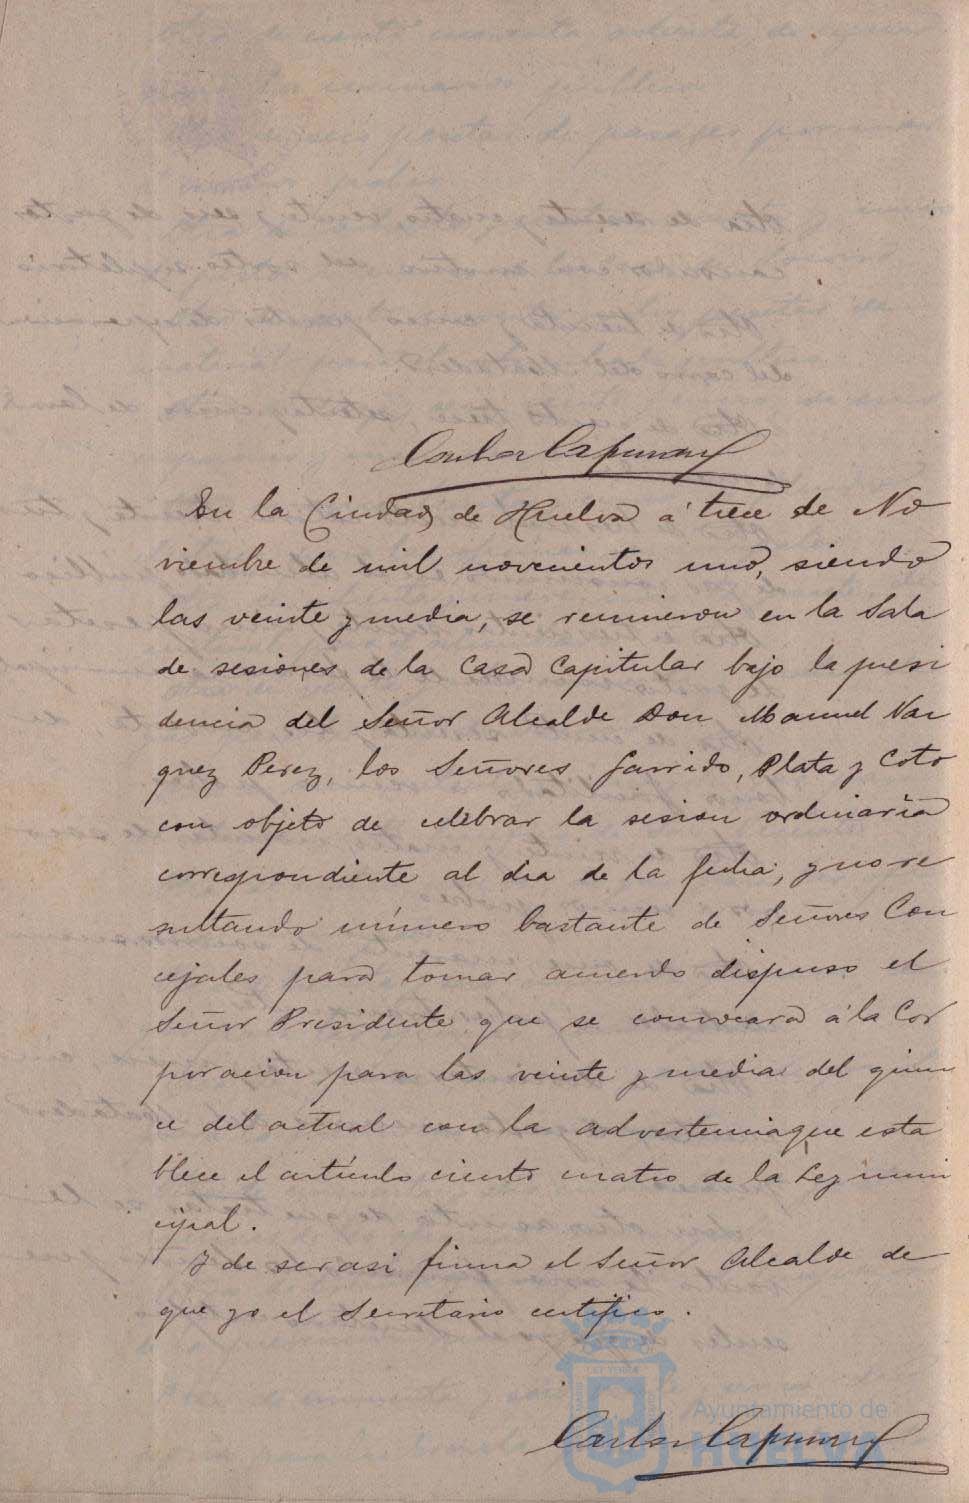 Carlos
En la Ciudad de Huelva á trece de No
viembre de mil novecientos uno, siendo
las veinte y media, se reunieron en la Sala
de sesiones de la Casa Capitular bajo la presi
dencia del Señor Alcalde Don Manuel Vaz
quez Perez, los Señores Garrido, Plata y Coto
con objeto de celebrar la sesion ordinaria
correspondiente al dia de la fecha, y no re
sultando número bastante de Señores Con
cejales para tomar acuerdo dispuso el
Señor Presidente que se convocara á la Cor
poracion para las veinte y media del quin
ce del actual con la advertencia que esta
blece el artículo ciento cuatro de la Ley muni
cipal.
Y de ser asi firma el Señor Alcalde de
que yo el Secretario certifico.
Ayuntamiento de
HUELVA
Carlos